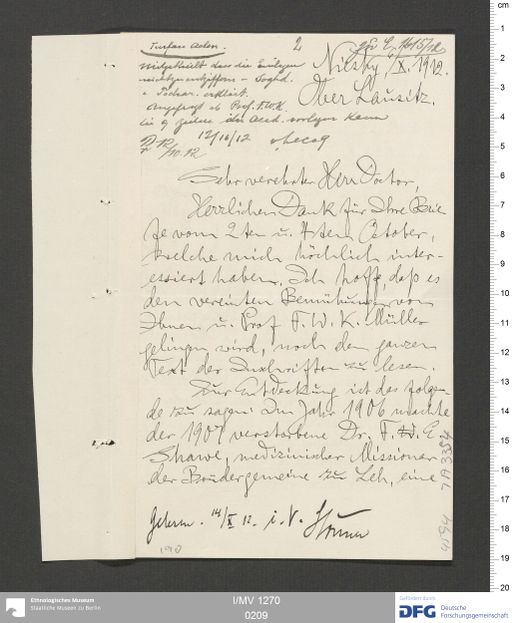 Turfan Acten.
2
mitgetheilt dass die Zeilen
nicht zu entziffern – Soghd.
u Tochar. erklärt.
angefragt ob Prof. F.W.K.
12/10/12
Niesky, X. 1912.
Ober Lausitz.
Sehr verehrter Herr Doctor,
Herzlichen Dank für Ihre Brie-
fe vom 2ten u. 4ten October,
welche mich höchlich inter-
essiert haben. Ich hoffe, daß es
den vereinten Bemühungen von
Ihnen u. Prof F. W. K. Müller
gelingen wird, noch den ganzen
Text der Inschriften zu lesen.
Zur Entdeckung ist das folgen-
de zu sagen: Im Jahr 1906 machte
der 1907 verstorbene Dr. F. E.
Shawe, medizinischer Missionar
der Brüdergemeine zu Leh, eine
14/X 12. i. V.
190
I/MV 1270
0209
Ethnologisches Museum
Staatliche Museen zu Berlin
Gefördert durch
DFG
Deutsche
Forschungsgemeinschaft
cm
1
2
3
4
5
6
7
8
9
10
11
12
13
14
15
16
17
18
19
20